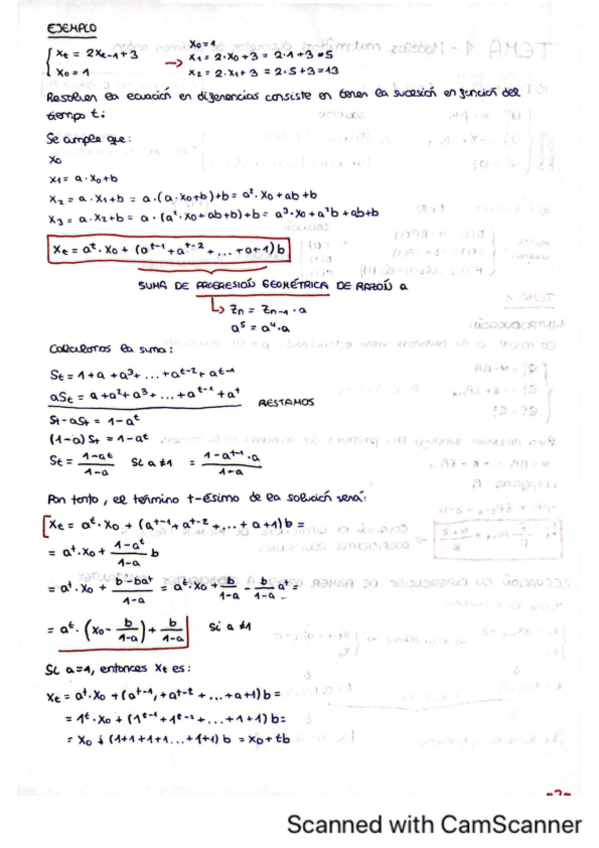 EJEMPLO
{ Xt = 2Xt-1+3
X0 = 1
→
X0=1
X1 = 2·X0+3 = 2·1+3=5
X2 = 2·X1+3 = 2·5+3=13
Resolver la ecuación en diferencias consiste en tener la sucesión en función del
tiempo t:
Se cumple que:
X0
X1 = a·X0+b
X2 = a·X1+b = a·(a·X0+b)+b = a²·X0+ab+b
X3 = a·X2+b = a·(a²·X0+ab+b)+b = a³·X0+a²b+ab+b
Xt = a^t·X0 + (a^t-1+a^t-2+...+a+1)b
SUMA DE PROGRESIÓN GEOMÉTRICA DE RAZÓN a
↳ Zn = Zn-1·a
a⁵ = a⁴·a
Calculamos la suma:
St = 1+a+a³+...+a^t-2+a^t-1
aSt = a+a²+a³+...+a^t-1+a^t
RESTAMOS
St-aSt = 1-a^t
(1-a)St = 1-a^t
St = (1-a^t)/(1-a) Si a≠1 = (1-a^t-1·a)/(1-a)
Por tanto, el término t-ésimo de la solución será:
Xt = a^t·X0 + (a^t-1+a^t-2+...+a+1)b =
= a^t·X0 + (1-a^t)/(1-a) b
= a^t·X0 + (b-ba^t)/(1-a) = a^t·X0 + b/(1-a) - b/(1-a) a^t =
= a^t·(X0 - b/(1-a)) + b/(1-a) Si a≠1
Si a=1, entonces Xt es:
Xt = a^t·X0 + (a^t-1+a^t-2+...+a+1)b =
= 1^t·X0 + (1^t-1+1^t-2+...+1+1)b=
= X0 + (1+1+1+1...+1+1)b = X0+tb
Scanned with CamScanner